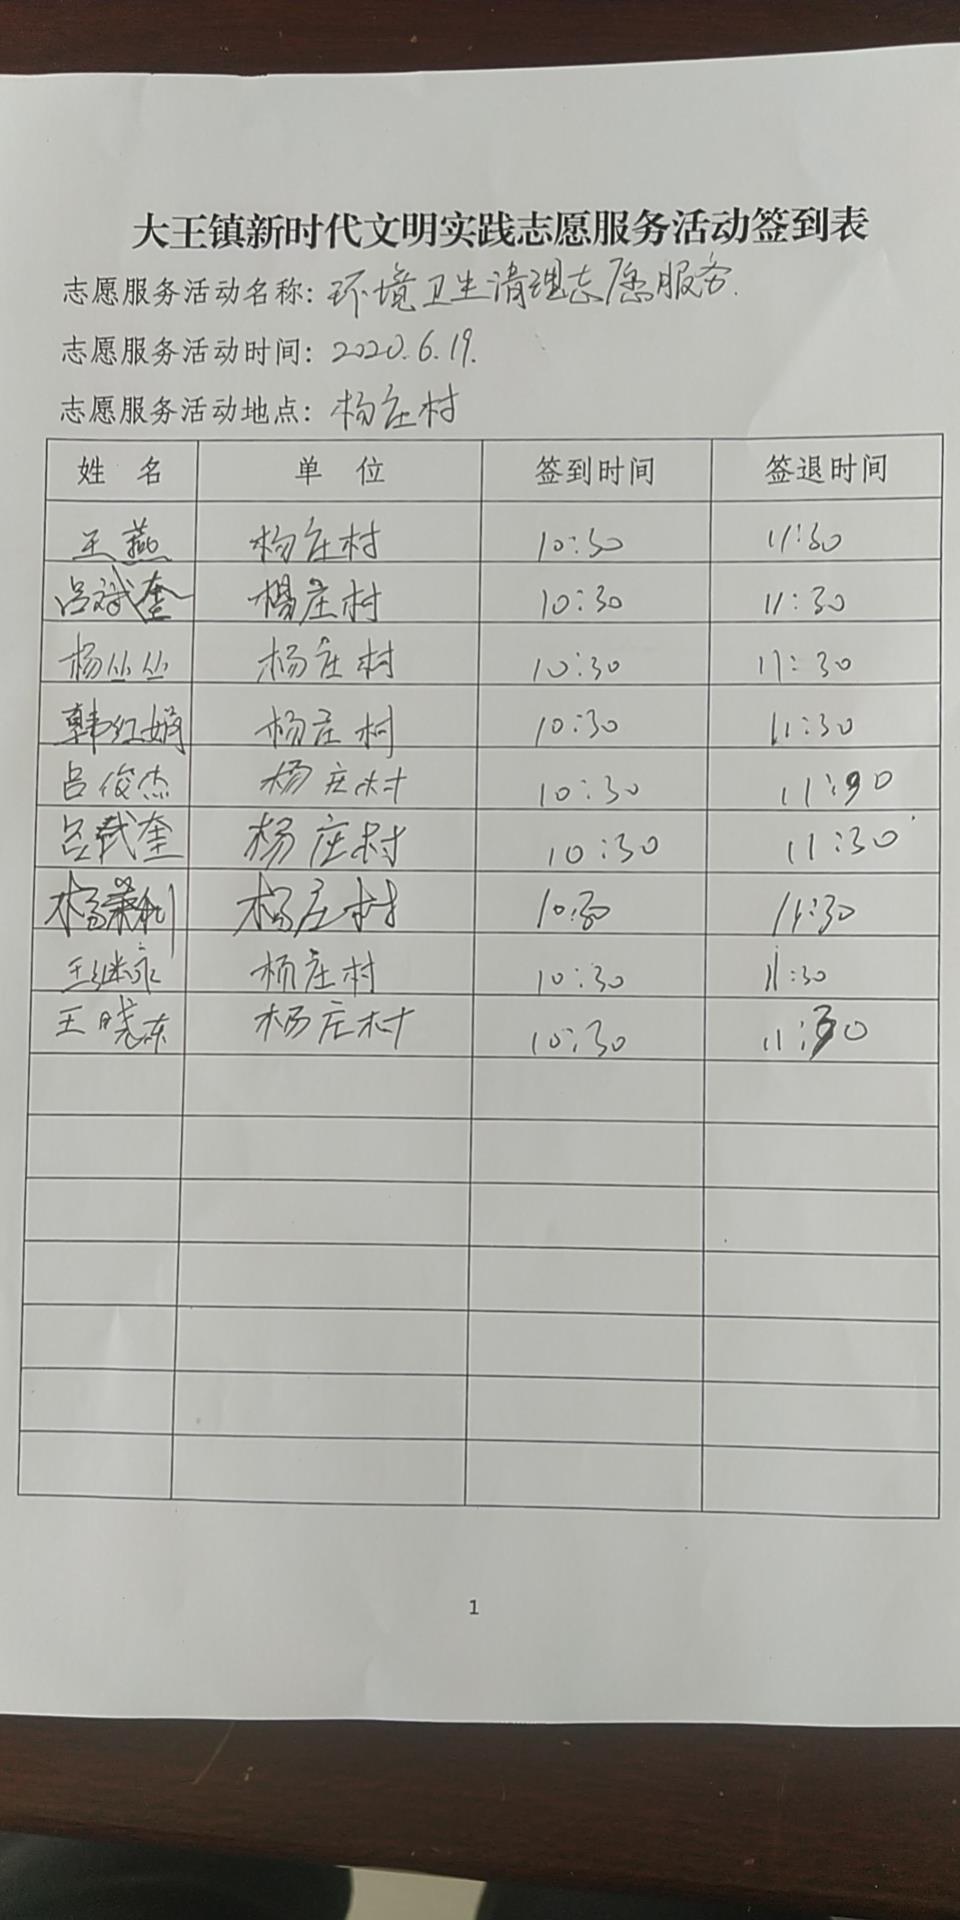 大王镇新时代文明实践志愿服务活动签到表
志愿服务活动名称: 环境卫生清理志愿服务.
志愿服务活动时间: 2020.6.19.
志愿服务活动地点: 杨庄村
姓 名 单 位 签到时间 签退时间
王燕 杨庄村 10:30 11:30
吕斌奎 楊庄村 10:30 11:30
杨丛丛 杨庄村 10:30 11:30
韩红娟 杨庄村 10:30 11:30
吕俊杰 杨庄村 10:30 11:30
吕武奎 杨庄村 10:30 11:30
杨荣利 杨庄村 10:30 11:30
王继永 杨庄村 10:30 11:30
王晓东 杨庄村 10:30 11:30
1